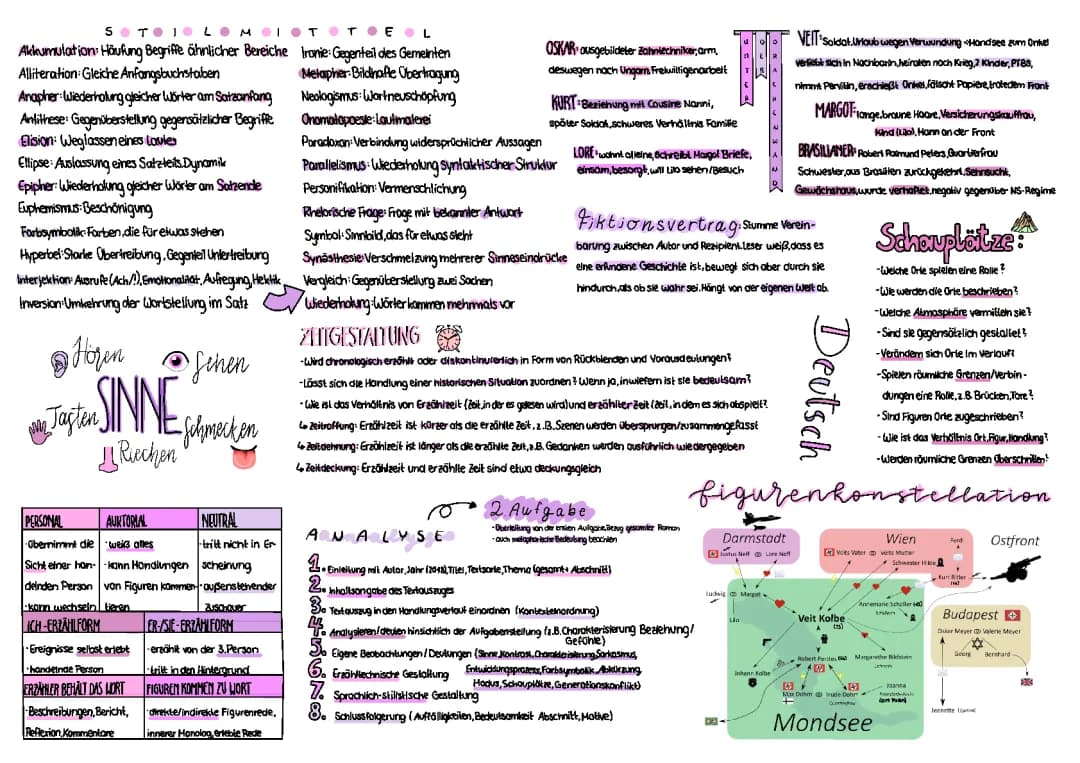 STILMITTEL
Akkumulation: Häufung Begriffe ähnlicher Bereiche
Alliteration: Gleiche Anfangsbuchstaben
Anapher: Wiederholung gleicher Wörter am Satzanfang
Antithese: Gegenüberstellung gegensätzlicher Begriffe
Elision: Weglassen eines Lautes
Ellipse: Auslassung eines Satzteils, Dynamik
Epipher: Wiederholung gleicher Wörter am Satzende
Euphemismus: Beschönigung
Farbsymbolik: Farben, die für etwas stehen
Hyperbel: Starke Übertreibung, Gegenteil Untertreibung
Interjektion: Ausrufe (Ach/!), Emotionalität, Aufregung, Hektik
Inversion: Umkehrung der Wortstellung im Satz
Ironie: Gegenteil des Gemeinten
Metapher: Bildhafte Übertragung
Neologismus: Wortneuschöpfung
Onomatopoesie: Lautmalerei
Paradoxon: Verbindung widersprüchlicher Aussagen
Parallelismus: Wiederholung syntaktischer Struktur
Personifikation: Vermenschlichung
Rhetorische Frage: Frage mit bekannter Antwort
Symbol: Sinnbild, das für etwas steht
Synästhesie: Verschmelzung mehrerer Sinneseindrücke
Vergleich: Gegenüberstellung zwei Sachen
Wiederholung: Wörter kommen mehrmals vor
OSKAR: ausgebildeter Zahntechniker, arm,
deswegen nach Ungarn, Freiwilligenarbeit
KURT: Beziehung mit Cousine Nanni,
später Soldat, schweres Verhältnis Familie
LORE: wohnt alleine, schreibt Margot Briefe,
einsam, besorgt, will Lilo sehen/Besuch
UNTER
DER
DRACHENWAND
VEIT: Soldat, Urlaub wegen Verwundung → Mondsee zum Onkel
verliebt sich in Nachbarin, heiraten nach Krieg, 2 Kinder, PTBS,
nimmt Pervitin, erschießt Onkel, fälscht Papiere, trotzdem Front
MARGOT: lange, braune Haare, Versicherungskauffrau,
Kind (Lilo), Mann an der Front
BRASILIANER: Robert Raimund Peters, Quartierfrau
Schwester, aus Brasilien zurückgekehrt, Sehnsucht,
Gewächshaus, wurde verhaftet, negativ gegenüber NS-Regime
Fiktionsvertrag: Stumme Verein-
barung zwischen Autor und Rezipient. Leser weiß, dass es
eine erfundene Geschichte ist, bewegt sich aber durch sie
hindurch, als ob sie wahr sei. Hängt von der eigenen Welt ab.
Schauplätze:
-Welche Orte spielen eine Rolle?
-Wie werden die Orte beschrieben?
-Welche Atmosphäre vermitteln sie?
-Sind sie gegensätzlich gestaltet?
-Verändern sich Orte im Verlauf?
-Spielen räumliche Grenzen/Verbin-
dungen eine Rolle, z.B. Brücken, Tore?
-Sind Figuren Orte zugeschrieben?
-Wie ist das Verhältnis Ort, Figur, Handlung?
-Werden räumliche Grenzen überschritten?
Deutsch
Hören
Sehen
SINNE
Tasten
Schmecken
Riechen
ZEITGESTALTUNG
-Wird chronologisch erzählt oder diskontinuierlich in Form von Rückblenden und Vorausdeutungen?
-Lässt sich die Handlung einer historischen Situation zuordnen? Wenn ja, inwiefern ist sie bedeutsam?
-Wie ist das Verhältnis von Erzählzeit (Zeit, in der es gelesen wird) und erzählter Zeit (Zeit, in dem es sich abspielt)?
↳ Zeitraffung: Erzählzeit ist kürzer als die erzählte Zeit, z.B. Szenen werden übersprungen/zusammengefasst
↳ Zeitdehnung: Erzählzeit ist länger als die erzählte Zeit, z.B. Gedanken werden ausführlich wiedergegeben
↳ Zeitdeckung: Erzählzeit und erzählte Zeit sind etwa deckungsgleich
PERSONAL
·übernimmt die
Sicht einer han-
delnden Person
·kann wechseln
AUKTORIAL
·weiß alles
·kann Handlungen
von Figuren kommen-
tieren
NEUTRAL
·tritt nicht in Er-
scheinung
·außenstehender
Zuschauer
ICH-ERZÄHLFORM
·Ereignisse selbst erlebt
·handelnde Person
ER-/SIE-ERZÄHLFORM
·erzählt von der 3. Person
·tritt in den Hintergrund
ERZÄHLER BEHÄLT DAS WORT
·Beschreibungen, Bericht,
Reflexion, Kommentare
FIGUREN KOMMEN ZU WORT
·direkte/indirekte Figurenrede,
innerer Monolog, erlebte Rede
ANALYSE
2. Aufgabe
-Überleitung von der ersten Aufgabe, Bezug gesamter Roman
-auch metaphorische Bedeutung beachten
1. Einleitung mit Autor, Jahr (2018), Titel, Textsorte, Thema (gesamt + Abschnitt)
2. Inhaltsangabe des Textauszuges
3. Textauszug in den Handlungsverlauf einordnen (Kontexteinordnung)
4. Analysieren/deuten hinsichtlich der Aufgabenstellung (z.B. Charakterisierung Beziehung/
Gefühle)
5. Eigene Beobachtungen/Deutungen (Sinne, Kontrast, Charakterisierung, Sarkasmus,
Entwicklungsprozess, Farbsymbolik, Abkürzung,
Modus, Schauplätze, Generationskonflikt)
6. Erzähltechnische Gestaltung
7. Sprachlich-stilistische Gestaltung
8. Schlussfolgerung (Auffälligkeiten, Bedeutsamkeit Abschnitt, Motive)
figurenkonstellation
Darmstadt
Justus Neff
Lore Neff
Wien
Veits Vater
Veits Mutter
Schwester Hilde
Ferdl
Kurt Ritler
Ostfront
Ludwig
Margot
Lilo
Veit Kolbe
Annemarie Schaller
Robert Perttes
Margarethe Bildstein
Lehrerin
Johann Kolbe
Max Dohm
Trude Dohm
Mondsee
Budapest
Oskar Meyer
Valerie Meyer
Georg
Bernhard
Jeannette